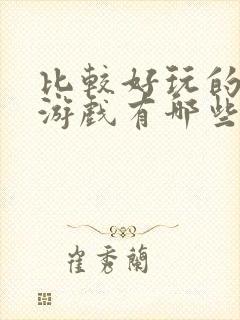 比較好玩的
游戲有哪些
崔秀蘭